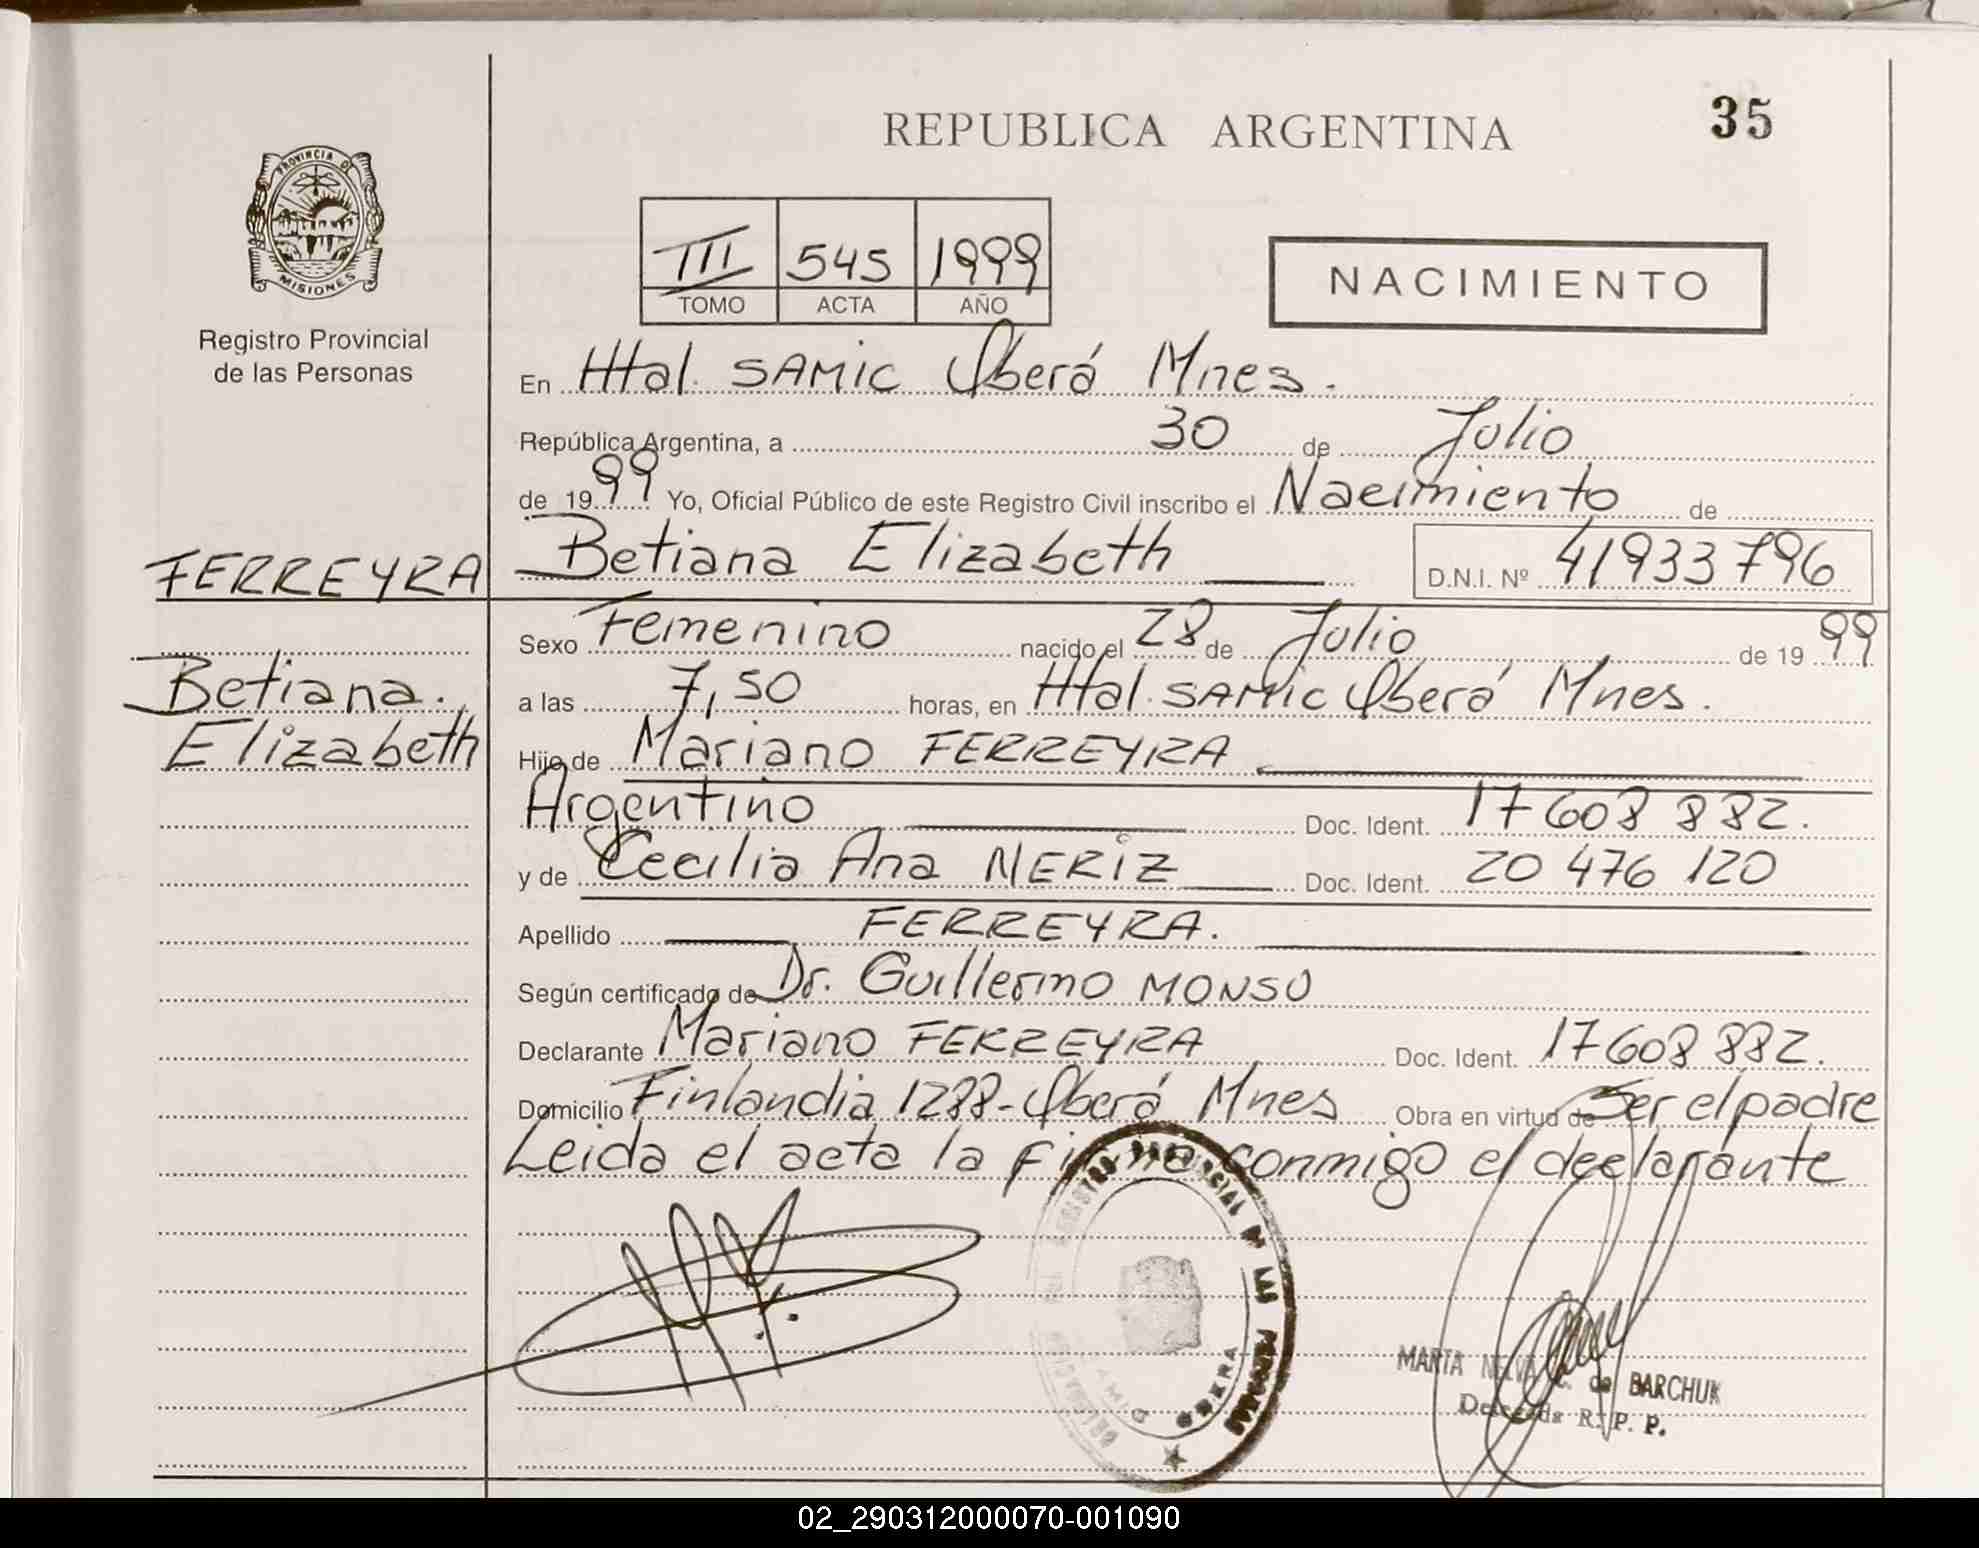 REPUBLICA ARGENTINA
35
PROVINCIA DE
MISIONES
Registro Provincial
de las Personas
III 545 1999
TOMO ACTA AÑO
NACIMIENTO
En Htal. SAMIC Oberá Mnes.
República Argentina, a 30 de Julio
de 1999 Yo, Oficial Público de este Registro Civil inscribo el Nacimiento de
FERREYRA
Betiana Elizabeth D.N.I. Nº 41933796
Betiana.
Elizabeth
Sexo Femenino nacido el 28 de Julio de 1999
a las 7,50 horas, en Htal. SAMIC Oberá Mnes.
Hijo de Mariano FERREYRA
Argentino Doc. Ident. 17 608 882.
y de Cecilia Ana NERIZ Doc. Ident. 20 476 120
Apellido FERREYRA.
Según certificado de Dr. Guillermo MONSO
Declarante Mariano FERREYRA Doc. Ident. 17608 882.
Domicilio Finlandia 1288-Oberá Mnes Obra en virtud de Ser el padre
Leida el acta la firma conmigo el declarante
REGISTRO PROVINCIAL DE LAS PERSONAS
OBERA
MARTA NELVA C. de BARCHUK
Delegada R. P. P.
02_290312000070-001090